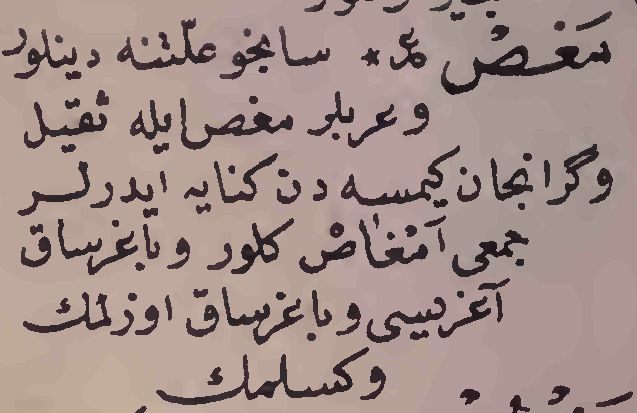 مَغْصْ ع * سانجو علّتنه دينلور
وعربلر مغص ايله ثقيل
وگرانجان كيمسه دن كنايه ايدرلر
جمعى اَمْغَاصْ كلور وباغرساق
آغريسى وباغرساق اوزلمك
وكسلمك